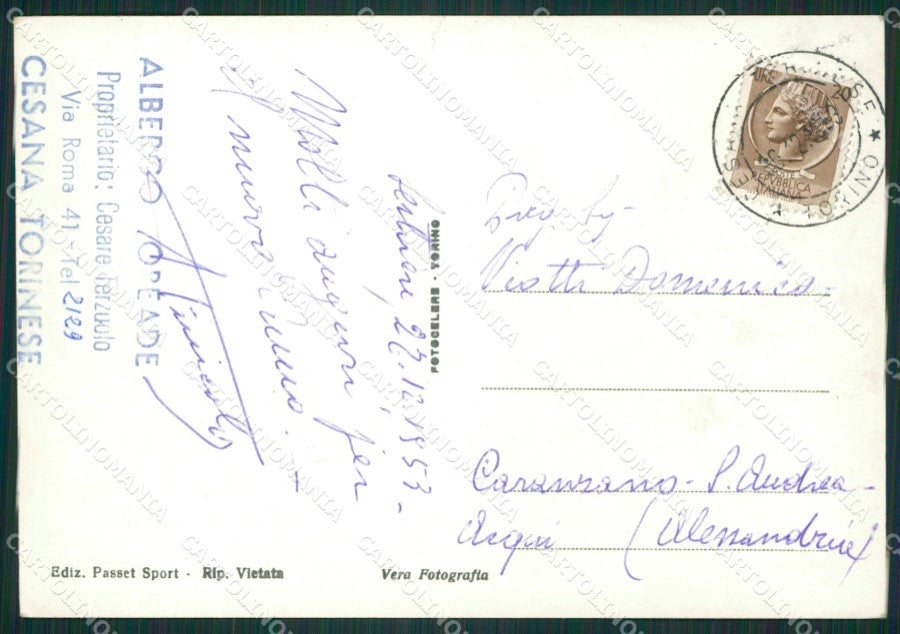 ALBERGO TOREADE
Proprietario: Cesare Terzuolo
Via Roma 41 - Tel 2129
CESANA TORINESE
22.12.1953 -
Molti auguri per
il nuovo anno.
FOTOCELERE - TORINO
LIRE 20
REPVBBLICA
ITALIANA
TORINO
Preg. Sig.
Viotti Domenico
Caranzano - S. Andrea -
Acqui (Alessandria)
Ediz. Passet Sport - Rip. Vietata
Vera Fotografia
CARTOLINOMANIA